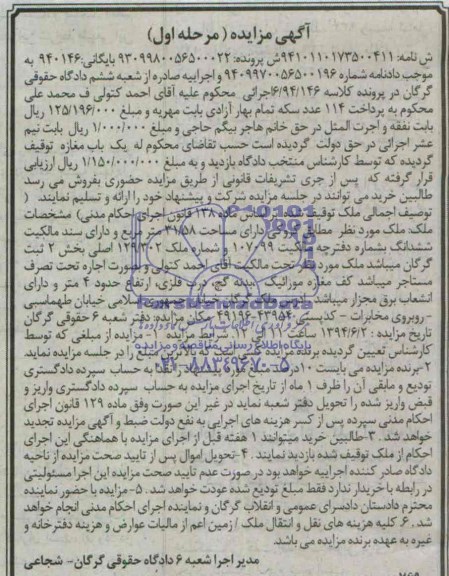 آگهی مزایده ( مرحله اول)
ش نامه: ۹۴۱۰۱۱۰۱۷۳۵۰۰۴۱۱ش پرونده: ۹۳۰۹۹۸۰۰۵۶۵۰۰۰۲۲ بایگانی:۹۴۰۱۴۶ به
موجب دادنامه شماره ۹۴۰۹۹۷۰۰۵۶۵۰۰۱۹۶ و اجراییه صادره از شعبه ششم دادگاه حقوقی
گرگان در پرونده کلاسه ۶/۹۴/۱۴۶اجرائی محکوم علیه آقای احمد کتولی ف محمد علی
محکوم به پرداخت ۱۱۴ عدد سکه تمام بهار آزادی بابت مهریه و مبلغ ۱۲۵/۱۹۶/۰۰۰ ریال
بابت نفقه و اجرت المثل در حق خانم هاجر بیگم حاجی و مبلغ ۱/۰۰۰/۰۰۰ ریال بابت نیم
عشر اجرائی در حق دولت گردیده است حسب تقاضای محکوم له یک باب مغازه توقیف
گردیده که توسط کارشناس منتخب دادگاه بازدید و به مبلغ ۱/۱۵۰/۰۰۰/۰۰۰ ریال ارزیابی
قرار گرفته که پس از جری تشریفات قانونی از طریق مزایده حضوری بفروش می رسد
طالبین خرید می توانند در جلسه مزایده شرکت و پیشنهاد خود را ارائه و تسلیم نمایند. (
توصیف اجمالی ملک توقیف ماده ۱۳۸ قانون اجرای احکام مدنی) مشخصات
ملک: ملک مورد نظر مطابق دارای مساحت ۳۱/۵۸ متر مربع و دارای سند مالکیت
ششدانگ بشماره دفترچه مالکیت ۱۰۷۰۹۹ و شماره ملک ۱۲۹/۳۰۲ اصلی بخش ۲ ثبت
گرگان میباشد ملک مورد نظر تحت مالکیت آقای احمد کتولی و بصورت اجاره تحت تصرف
مستاجر میباشد کف مغازه موزائیک، بدنه گچ، درب فلزی، ارتفاع حدود ۴ متر و دارای
انشعاب برق مجزا میباشد گرگان خیابان جمهوری اسلامی خیابان طهماسبی
-روبروی مخابرات - کدپستی ۴۳۹۵۴-۴۹۱۹۶ مکان مزایده: دفتر شعبه ۶ حقوقی گرگان
تاریخ مزایده : ۱۳۹۴/۶/۲ ساعت شرایط مزایده ۱- مزایده از مبلغی که توسط
کارشناس تعیین گردیده برنده مزایده کسی است که بالاترین مبلغ را در جلسه مزایده نماید.
۲-برنده مزایده می بایست ۱۰درصد به حساب سپرده دادگستری
تودیع و مابقی آن را ظرف ۱ ماه از تاریخ اجرای مزایده به حساب سپرده دادگستری واریز و
قبض واریز شده را تحویل دفتر شعبه نماید در غیر این صورت وفق ماده ۱۲۹ قانون اجرای
احکام مدنی سپرده پس از کسر هزینه های اجرایی به نفع دولت ضبط و آگهی مزایده تجدید
خواهد شد. ۳-طالبین خرید میتوانند ۱ هفته قبل از اجرای مزایده با هماهنگی این اجرای
احکام از ملک توقیف شده بازدید نمایند. ۴-تحویل اموال پس از تایید صحت مزایده از ناحیه
دادگاه صادر کننده اجراییه خواهد بود در صورت عدم تایید صحت مزایده این اجرا مسئولیتی
در رابطه با خریدار ندارد فقط مبلغ تودیع شده عودت خواهد شد. ۵-مزایده با حضور نماینده
محترم دادستان دادسرای عمومی و انقلاب گرگان و نماینده اجرای احکام مدنی انجام خواهد
شد. ۶. کلیه هزینه های نقل و انتقال ملک / زمین اعم از مالیات عوارض و هزینه دفترخانه و
غیره به عهده برنده مزایده می باشد.
مدیر اجرا شعبه ۶ دادگاه حقوقی گرگان- شجاعی
پایگاه اطلاع رسانی مناقصه و مزایده
۰۲۱-۸۸۳۴۹۶۷۰-۵